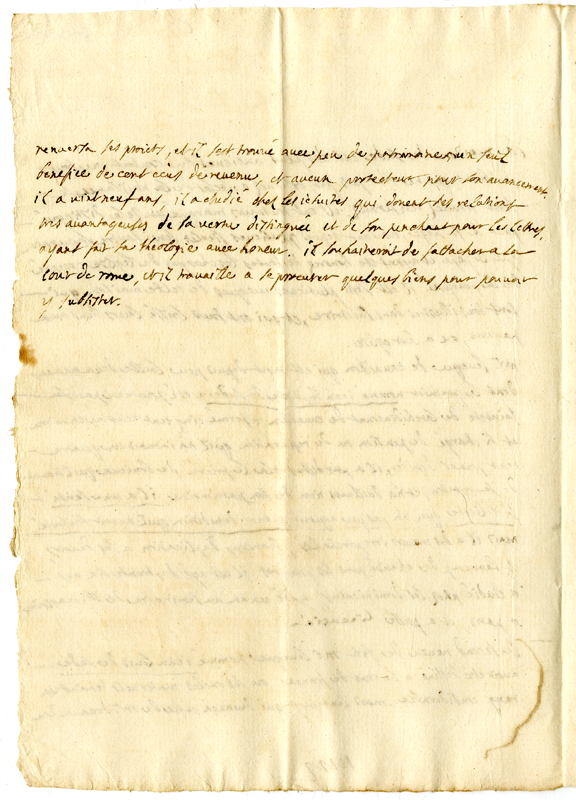 renversa ses proiets, et il s'est trouvé avec peu de patrimoine, un seul
benefice de cent ecus de revenu, et aucun protecteur pour son avancement.
il a vint neuf ans, il a etudié chez les iesuites qui donent des relations
tres avantageuses de sa vertu distinguée et de son penchant pour les lettres,
ayant fait sa theologie avec honeur. il souhaiteroit de s'attacher a la
cour de rome, et il travaille a se procurer quelques biens pour pouvoir
y subsister.